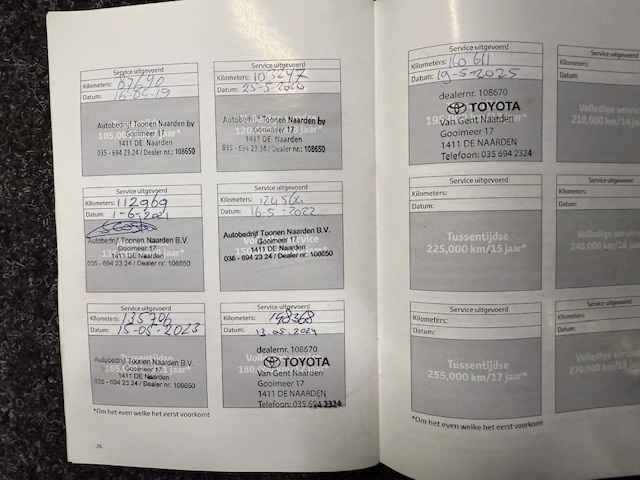 Service uitgevoerd
Kilometers:
Datum:
Autobedrijf Toonen Naarden bv
Gooimeer 17
1411 DE Naarden
035 - 694 23 24 / Dealer nr.: 108650
Service uitgevoerd
Kilometers: 103247
Datum: 25-5-2020
Autobedrijf Toonen Naarden bv
Gooimeer 17
1411 DE Naarden
035 - 694 23 24 / Dealer nr.: 108650
Service uitgevoerd
Kilometers: 112969
Datum: 1-6-2021
Autobedrijf Toonen Naarden B.V.
Gooimeer 17
1411 DE Naarden
035 - 694 23 24 / Dealer nr.: 108650
Service uitgevoerd
Kilometers:
Datum: 16-5-2022
Autobedrijf Toonen Naarden B.V.
Gooimeer 17
1411 DE Naarden
035 - 694 23 24 / Dealer nr.: 108650
Service uitgevoerd
Kilometers: 135706
Datum: 15-05-2023
Autobedrijf Toonen Naarden B.V.
Gooimeer 17
1411 DE Naarden
035 - 694 23 24 / Dealer nr.: 108650
Service uitgevoerd
Kilometers: 148368
Datum: 13.05.2024
dealernr. 108670
TOYOTA
Van Gent Naarden
Gooimeer 17
1411 DE NAARDEN
Telefoon: 035 694 2324
*Om het even welke het eerst voorkomt
Service uitgevoerd
Kilometers: 160 611
Datum: 19-5-2025
dealernr. 108670
TOYOTA
Van Gent Naarden
Gooimeer 17
1411 DE NAARDEN
Telefoon: 035 694 2324
Service uitgevoerd
Kilometers:
Datum:
Volledige
210,000 km/14
Service uitgevoerd
Kilometers:
Datum:
Tussentijdse
225,000 km/15 jaar*
Service uitgevoerd
Kilometers:
Datum:
Volledige
240,000 km/16
Service uitgevoerd
Kilometers:
Datum:
Tussentijdse
255,000 km/17 jaar*
Service uitgevoerd
Kilometers:
Datum:
Volledige
270,000 km/18
*Om het even welke het eerst voorkomt